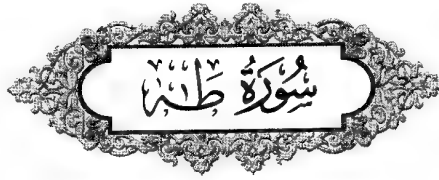 سُورَةُ طٰهٰ